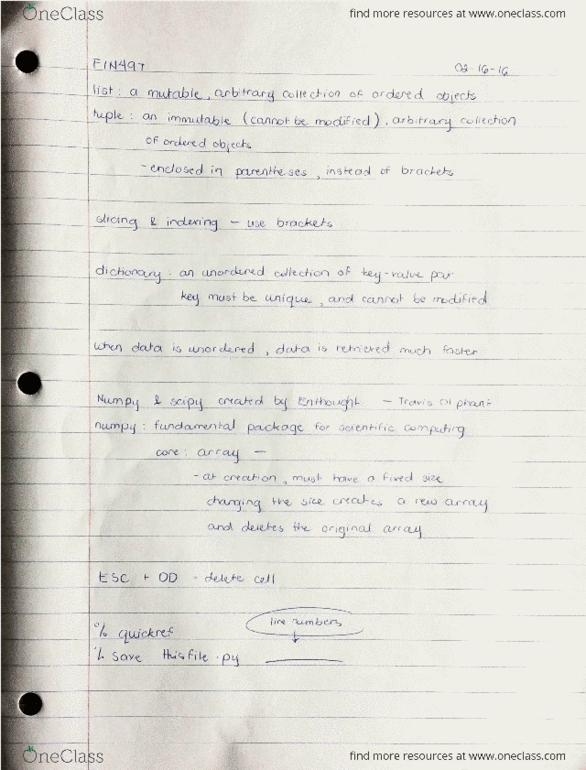 OneClass find more resources at www.oneclass.com
FIN497 02-16-16
list : a mutable, arbitrary collection of ordered objects
tuple : an immutable (cannot be modified), arbitrary collection
of ordered objects
- enclosed in parentheses, instead of brackets
slicing & indexing - use brackets
dictionary : an unordered collection of key-value pair
key must be unique, and cannot be modified
when data is unordered, data is retrieved much faster
Numpy & scipy created by Enthought - Travis Oliphant
numpy : fundamental package for scientific computing
core : array -
- at creation, must have a fixed size
changing the size creates a new array
and deletes the original array
ESC + DD - delete cell
line numbers
% quickref
% save thisfile.py
OneClass find more resources at www.oneclass.com